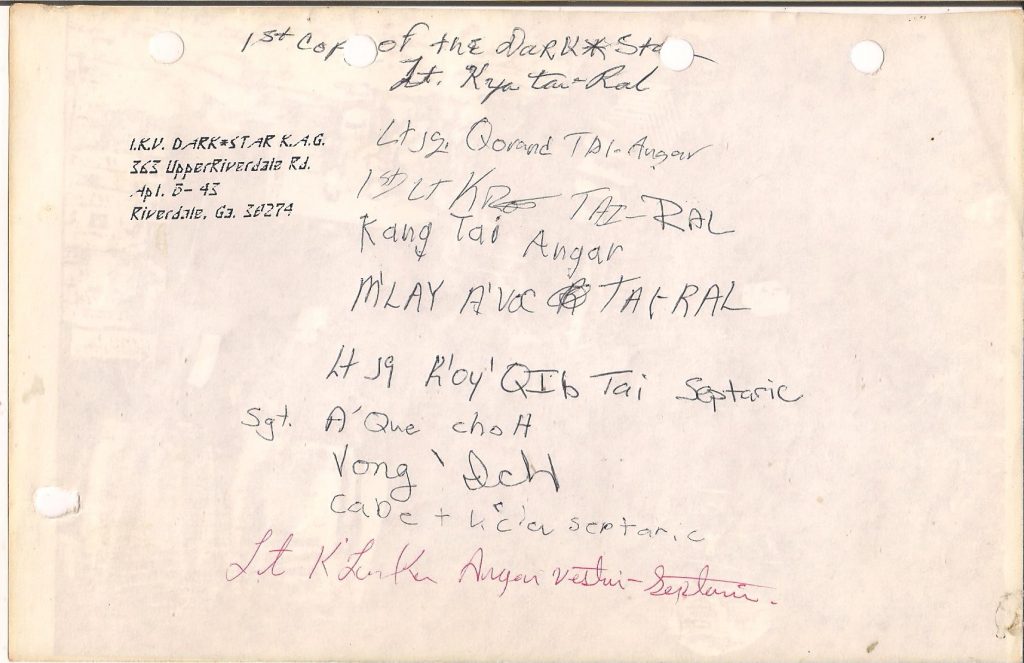 1st Cop of the Dark*Sta
Lt. Kya tai-Ral
I.K.V. DARK*STAR K.A.G.
363 UpperRiverdale Rd.
Apt. D- 43
Riverdale, Ga. 30274
Ltjg. Qorand TAI-Angar
1st LT TAI-RAL
Kang Tai Angar
M'LAY A'VOC TAI-RAL
Lt jg K'oy' QIb Tai Septaric
Sgt. A'Que choH
Vong 'IcH
Cabe + septaric
Lt Angar Vestai-Septaric.